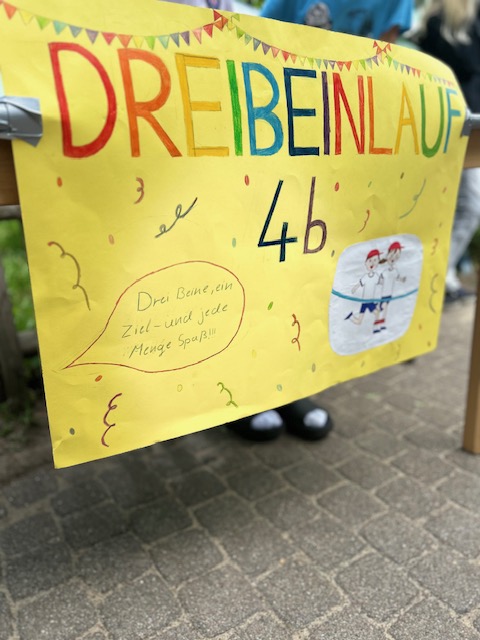 DREIBEINLAUF
4b
Drei Beine, ein
Ziel - und jede
Menge Spaß!!!